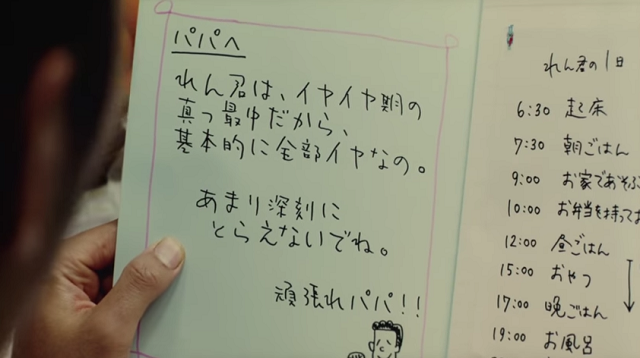 パパへ
れん君は、イヤイヤ期の
真っ最中だから、
基本的に全部イヤなの。
あまり深刻に
とらえないでね。
頑張れパパ!!
れん君の1日
6:30 起床
7:30 朝ごはん
9:00 お家であそぶ
10:00 お弁当を持ってお
12:00 昼ごはん
15:00 おやつ
17:00 晩ごはん
19:00 お風呂